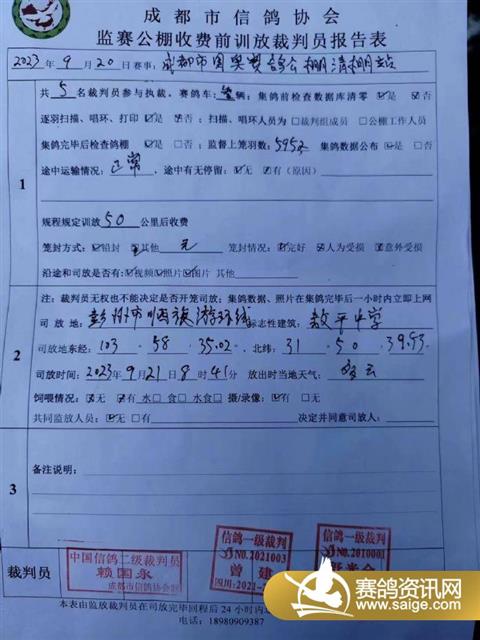 成都市信鸽协会
监赛公棚收费前训放裁判员报告表
2023年9月20日赛事：成都市国奥赛鸽公棚清棚站
共5名裁判员参与执裁。赛鸽车：辆；集鸽前检查数据库清零 ☑是 □否
逐羽扫描、唱环、打印 ☑是 □否；扫描、唱环人员为 □裁判组成员 □公棚工作人员
集鸽完毕后检查鸽棚 ☑是 □否；监督上笼羽数：5952 集鸽数据公布 ☑是 □否
途中运输情况：正常，途中有无停留：☑无 □有（原因）
1
规程规定训放50公里后收费
笼封方式：□铅封 ☑其他 无 笼封情况：☑完好 人为受损 意外受损
沿途和司放是否有：☑视频 ☑照片 ☑图片 其他
注：裁判员无权也不能决定是否开笼司放；集鸽数据、照片在集鸽完毕后一小时内立即上网
司放地：彭州市 旅游环线 标志性建筑：敖平中学
2
司放地东经：103 · 58 · 35.02，北纬：31 · 50 · 39.93
司放时间：2023年9月21日8时41分 放出时当地天气：多云
饲喂情况：☑无 □有 水□ 食□ 水食□ 摄/录像：□无 ☑有
共同监放人员：☑无 □有 决定并同意司放人：
备注说明：
3
裁判员
中国信鸽二级裁判员
赖国永
成都市信鸽协会
信鸽一级裁判
NO.2021003
曾建
四川：2021-
信鸽一级裁判
NO.2010001
本表由监放裁判员在司放完毕回程后24小时内
电话：18980909387
赛鸽资讯网
www.saige.com